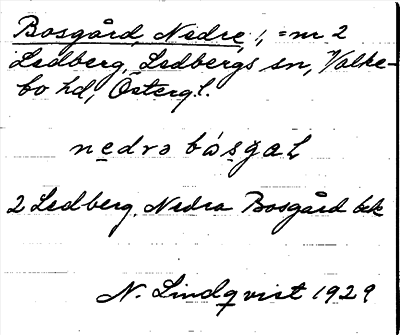 Bosgård, Nedre, = nr 2
Ledberg, Ledbergs sn, Valke-
bo hd, Östergl.
nedrə bósgaL
2 Ledberg, Nedra Bosgård bek
N. Lindqvist 1929